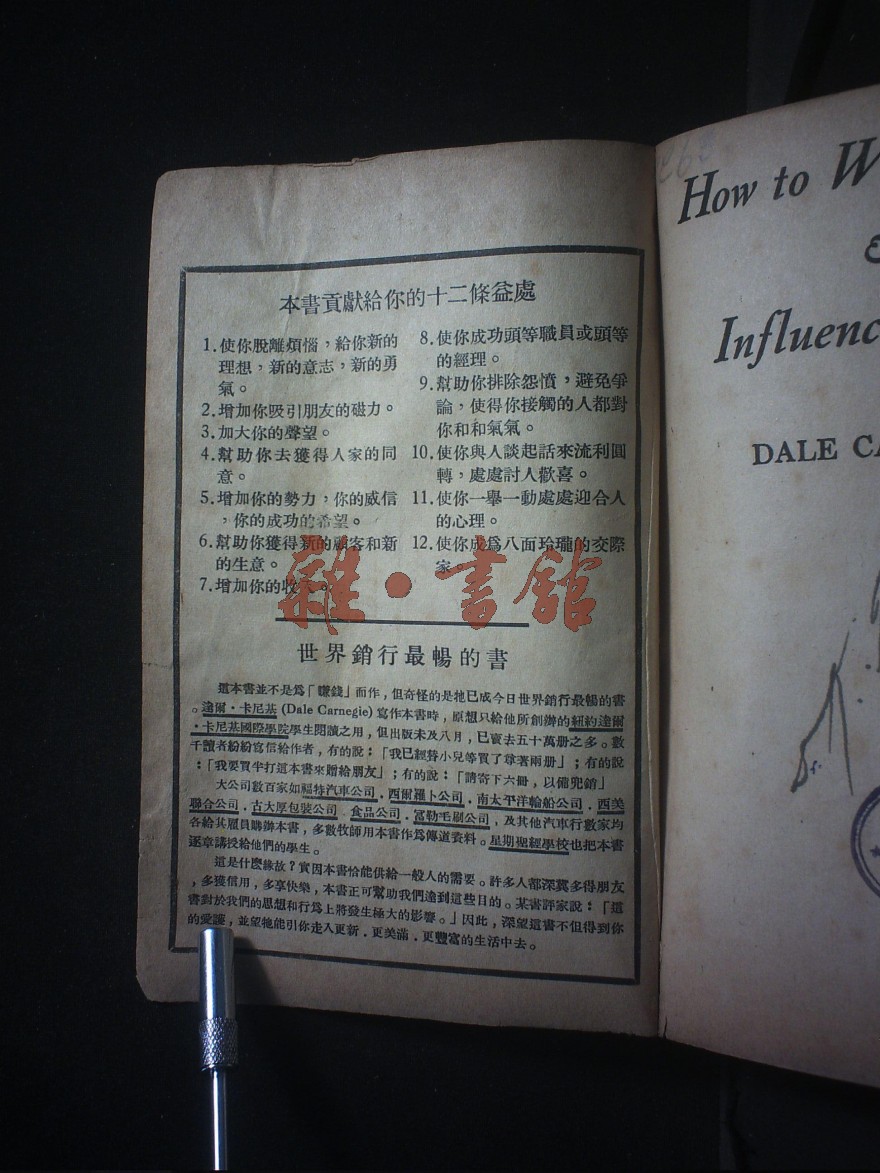 本書貢獻給你的十二條益處
1.使你脫離煩惱，給你新的
理想，新的意志，新的勇
氣。
2.增加你吸引朋友的磁力。
3.加大你的聲望。
4.幫助你去獲得人家的同
意。
5.增加你的勢力，你的威信
，你的成功的希望。
6.幫助你獲得新的顧客和新
的生意。
7.增加你的收
8.使你成功頭等職員或頭等
的經理。
9.幫助你排除怨憤，避免爭
論，使得你接觸的人都對
你和和氣氣。
10.使你與人談起話來流利圓
轉，處處討人歡喜。
11.使你一舉一動處處迎合人
的心理。
12.使你成爲八面玲瓏的交際
家。
雜·書館
世界銷行最暢的書
這本書並不是爲「賺錢」而作，但奇怪的是牠已成今日世界銷行最暢的書
。達爾·卡尼基 (Dale Carnegie) 寫作本書時，原想只給他所創辦的紐約達爾
·卡尼基國際學院學生閱讀之用，但出版未及八月，已賣去五十萬册之多。數
千讀者紛紛寫信給作者，有的說：「我已經替小兒等買了尊著兩册」；有的說
：「我要買半打這本書來贈給朋友」；有的說：「請寄下六册，以備兜銷」
大公司數百家如福特汽車公司．西爾羅卜公司．南太平洋輪船公司，西美
聯合公司．古大厚包裝公司 食品公司．富勒毛刷公司，及其他汽車行數家均
各給其雇員購辦本書，多數牧師用本書作爲傳道資料。星期聖經學校也把本書
逐章講授給他們的學生。
這是什麼緣故？實因本書恰能供給一般人的需要。許多人都深冀多得朋友
，多獲信用，多享快樂，本書正可幫助我們達到這些目的。某書評家說：「這
書對於我們的思想和行爲上將發生極大的影響。」因此，深望這書不但得到你
的愛護，並望牠能引你走入更新．更美滿．更豐富的生活中去。
How to W
&
Influenc
DALE CA